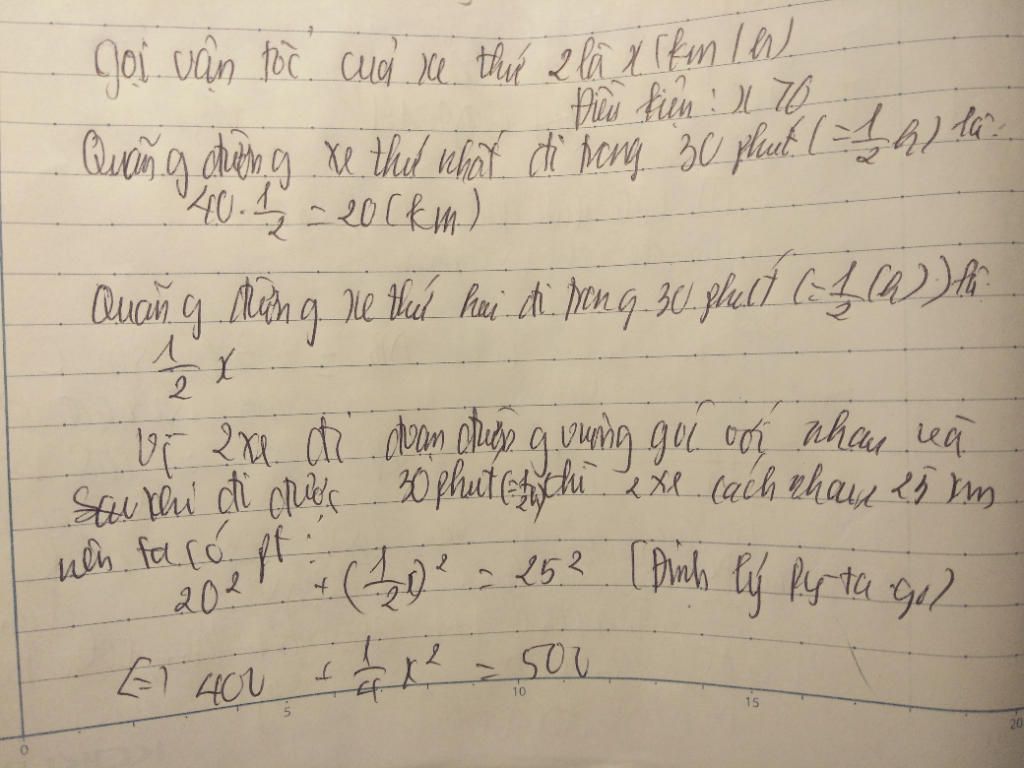 Gọi vận tốc của xe thứ 2 là x (km/h)
Điều kiện: x > 0
Quãng đường xe thứ nhất đi trong 30 phút (= 1/2 h) là:
40 · 1/2 = 20 (km)
Quãng đường xe thứ hai đi trong 30 phút (= 1/2 (h)) là
1/2 x
Vì 2 xe đi đoạn đường vuông gói với nhau và
sau khi đi được 30 phút (= 1/2 h) thì 2 xe cách nhau 25 km
nên ta có pt:
20² + (1/2 x)² = 25² (Định lý Py-ta-go)
<=> 400 + 1/4 x² = 500
0 5 10 15 20